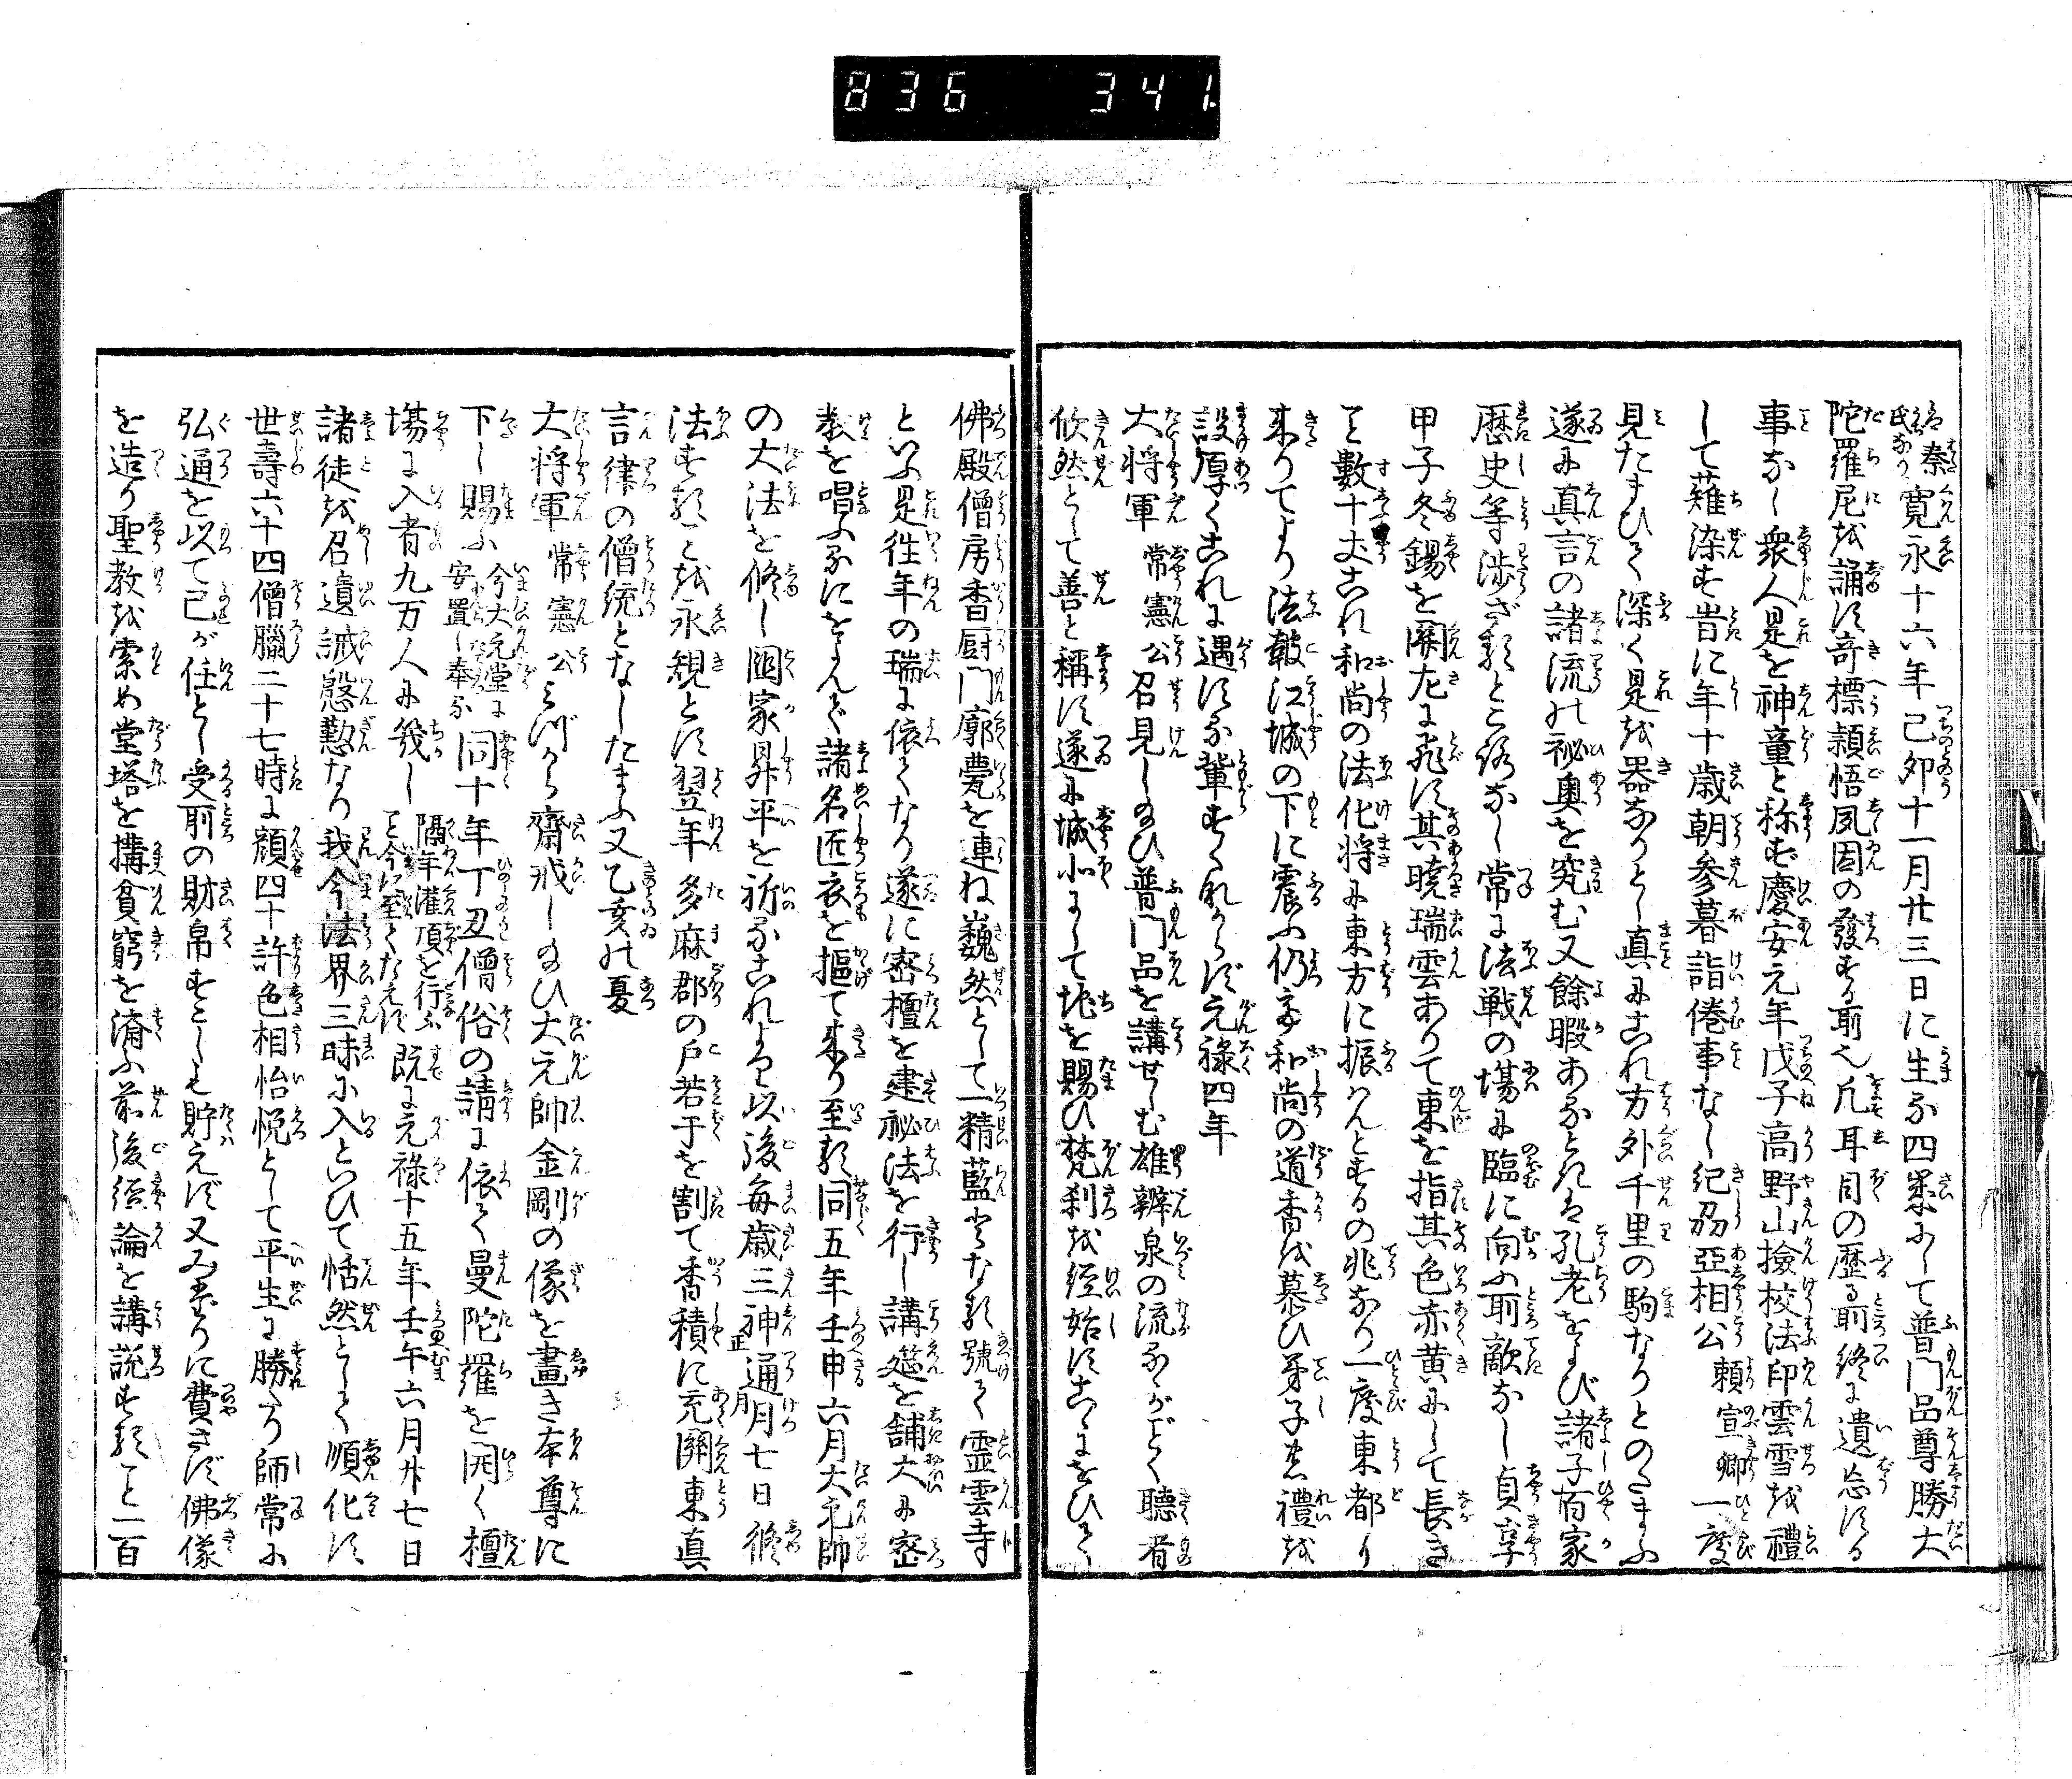 836 341
氏秦寛永十六年己卯十一月廿三日に生る四歳にして普門品尊勝大
陀羅尼を誦す奇標頴悟夙因の發する所也凡耳目の歴る所終に遺忘する
事なし衆人是を神童と称ず慶安元年戊子高野山撿校法印雲雪を禮
して薙染す旹に年十歳朝参暮詣倦事なし紀刕亞相公頼宣卿一度
見たまひて深く是を器なりとし真にこれ方外千里の駒なりとのたまふ
遂に真言の諸流の祕奥を究む又餘暇あるときは孔老をよび諸子百家
歴史等渉ざるところなし常に法戦の塲に臨に向ふ所敵なし貞享
甲子冬錫を關左に飛す其曉瑞雲ありて東を指其色赤黄にして長き
こと數十丈これ和尚の法化将に東方に振はんとするの兆なり一度東都に
来りてより法皷江城の下に震ふ仍て和尚の道香を慕ひ弟子の禮を
設厚くこれに遇する輩すくなからず元禄四年
大将軍常憲公召見し給ひ普門品を講ぜしむ雄辨泉の流るゝがごとく聴者
欣然として善と稱す遂に城北にして地を賜ひ梵刹を經始すこゝにをひて
佛殿僧房香厨門廓甍を連ね巍然として一精藍となる號て霊雲寺
といふ是徃年の瑞に依てなり遂に密檀を建祕法を行し講筵を舗大に密
教を唱ふるにをよんで諸名匠衣を摳て来り至る同五年壬申六月大元帥
の大法を修し國家昇平を祈るこれより以後毎歳三神通月七日修
正月
法することを永規とす翌年多麻郡の戸若干を割て香積に充關東真
言律の僧統となしたまふ又乙亥の夏
大将軍常憲公みづから齋戒し給ひ大元帥金剛の像を畫き本尊に
下し賜ふ今大元堂に安置し奉る同十年丁丑僧俗の請に依て曼陀羅を開く檀
塲に入者九万人に幾し隔年灌頂を行ふこと今に至てたえず既に元禄十五年壬午六月廿七日
諸徒を召遺誡慇懃なり我今法界三昧に入といひて恬然として順化す
世壽六十四僧臘二十七時に顔四十許色相怡悦として平生に勝たり師常に
弘通を以て己が任とし受所の財帛すこしも貯えず又みだりに費さず佛像
を造り聖教を索め堂塔を搆貧窮を濟ふ前後經論を講説すること二百